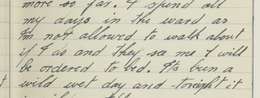 more so far. I spend all
my days in the ward as
I'm not allowed to walk about
if I as and they see me I will
be ordered to bed. Its been a
wild wet day and tonight it